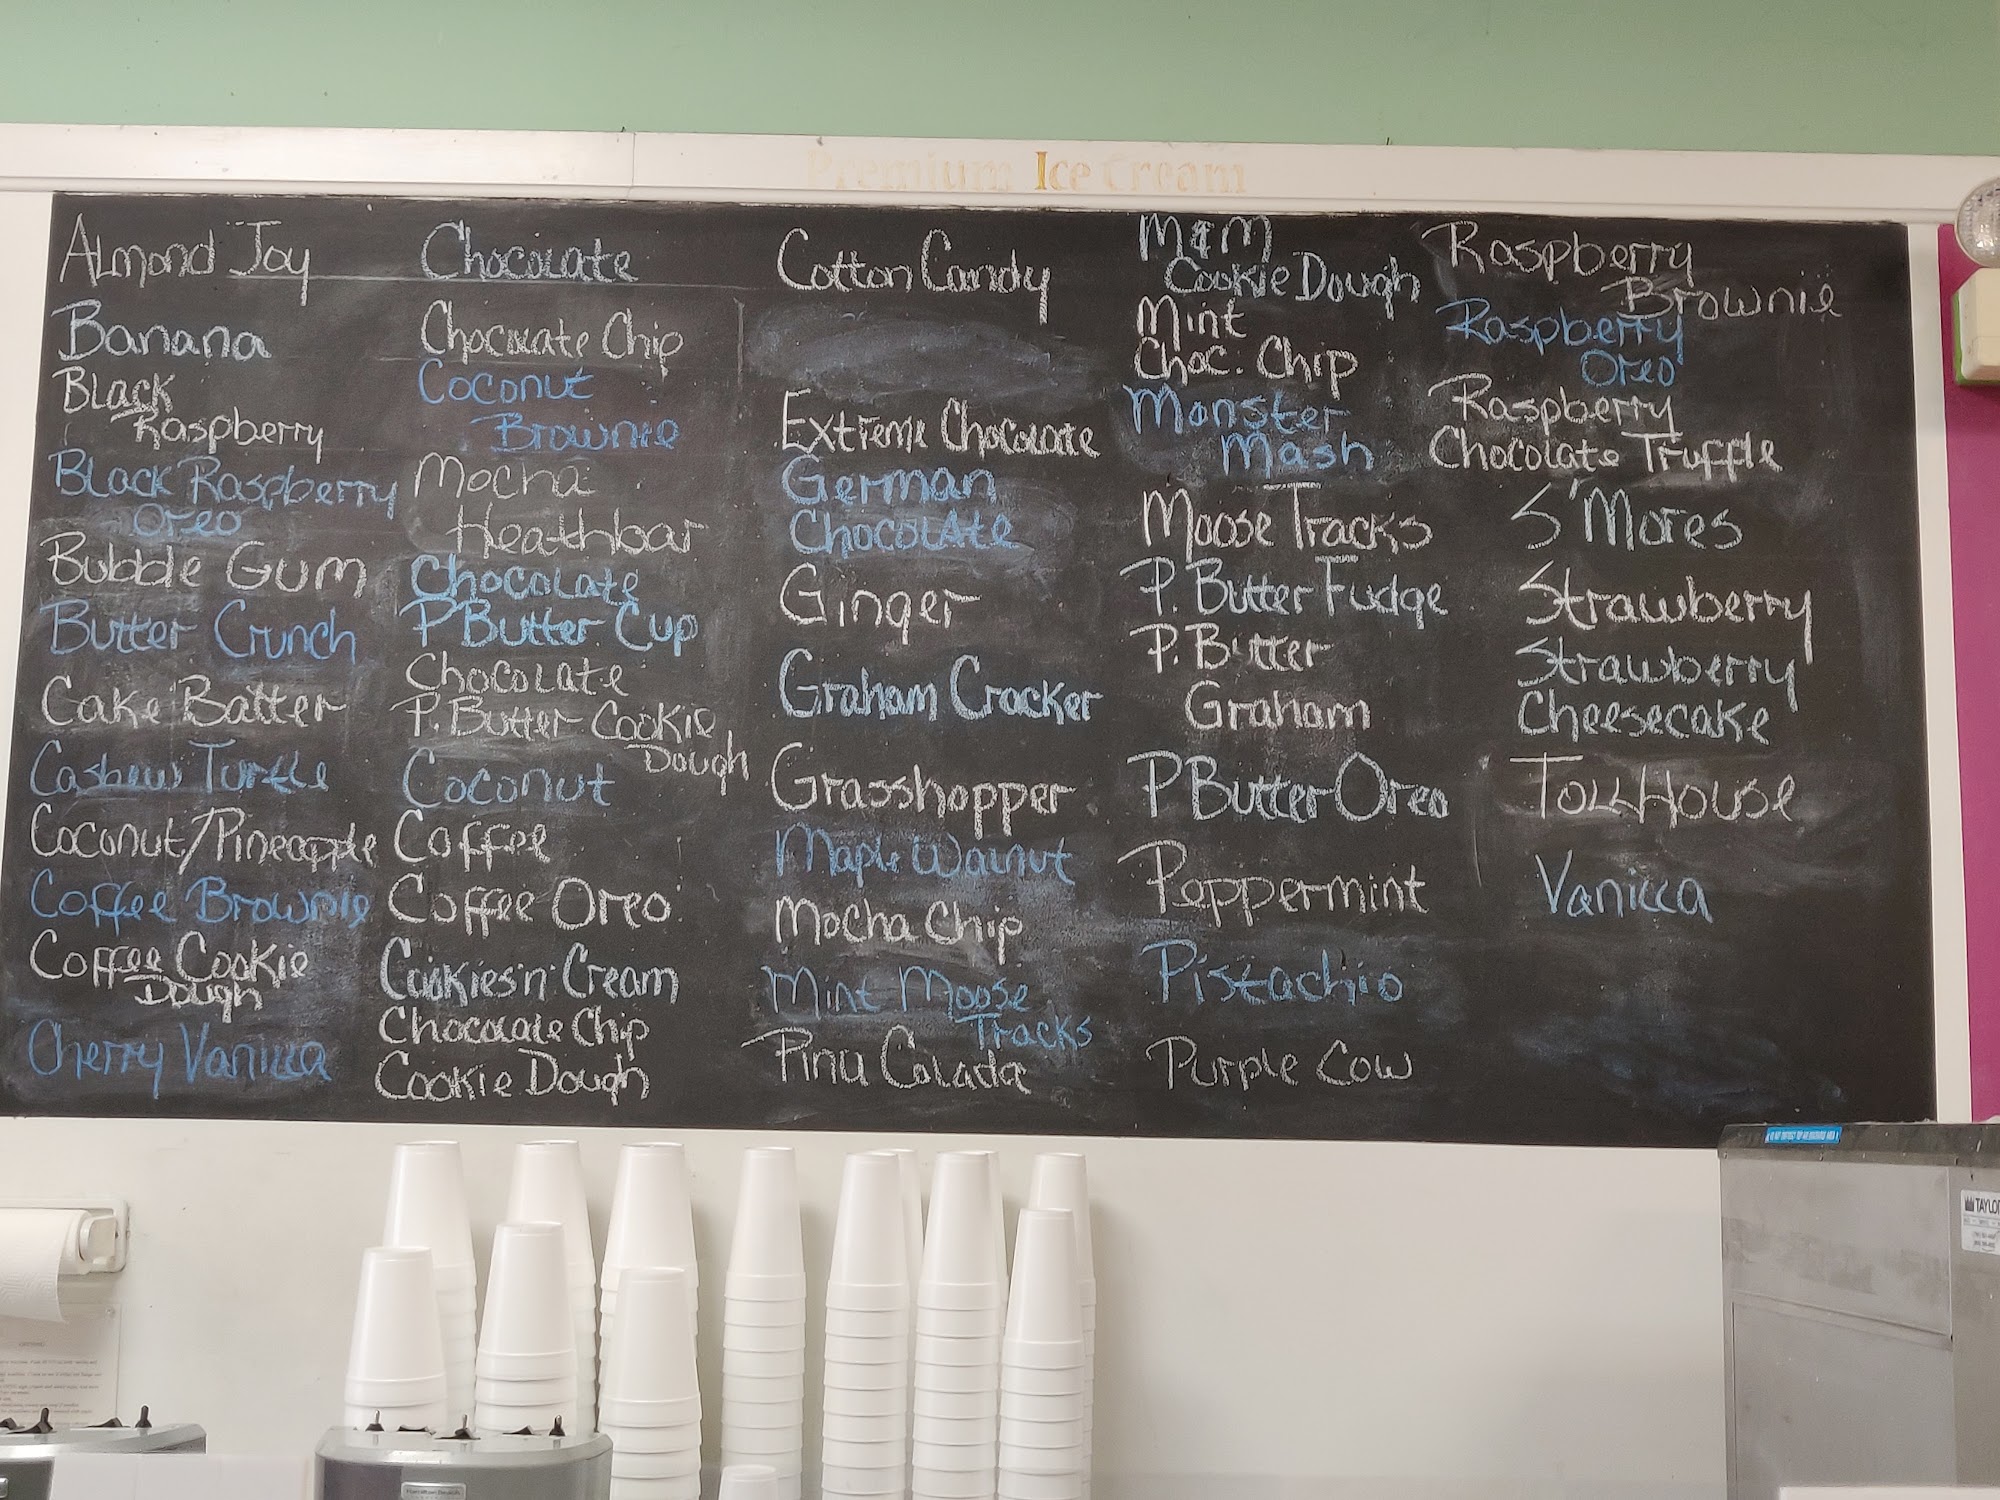 Premium Ice Cream
Almond Joy
Banana
Black
Raspberry
Black Raspberry
Oreo
Bubble Gum
Butter Crunch
Cake Batter
Cashew Turtle
Coconut/Pineapple
Coffee Brownie
Coffee Cookie
Dough
Cherry Vanilla
Chocolate
Chocolate Chip
Coconut
Brownie
Mocha
Heathbar
Chocolate
P Butter Cup
Chocolate
P. Butter Cookie
Dough
Coconut
Coffee
Coffee Oreo
Cookies'n' Cream
Chocolate Chip
Cookie Dough
Cotton Candy
Extreme Chocolate
German
Chocolate
Ginger
Graham Cracker
Grasshopper
Maple Walnut
Mocha Chip
Mint Moose
Tracks
Pinu Colada
M&M
Cookie Dough
Mint
Choc. Chip
Monster
Mash
Moose Tracks
P. Butter Fudge
P. Butter
Graham
P Butter Oreo
Peppermint
Pistachio
Purple Cow
Raspberry
Brownie
Raspberry
Oreo
Raspberry
Chocolate Truffle
S'Mores
Strawberry
Strawberry
Cheesecake
Toll House
Vanilla
TAYLOR
Hamilton Beach